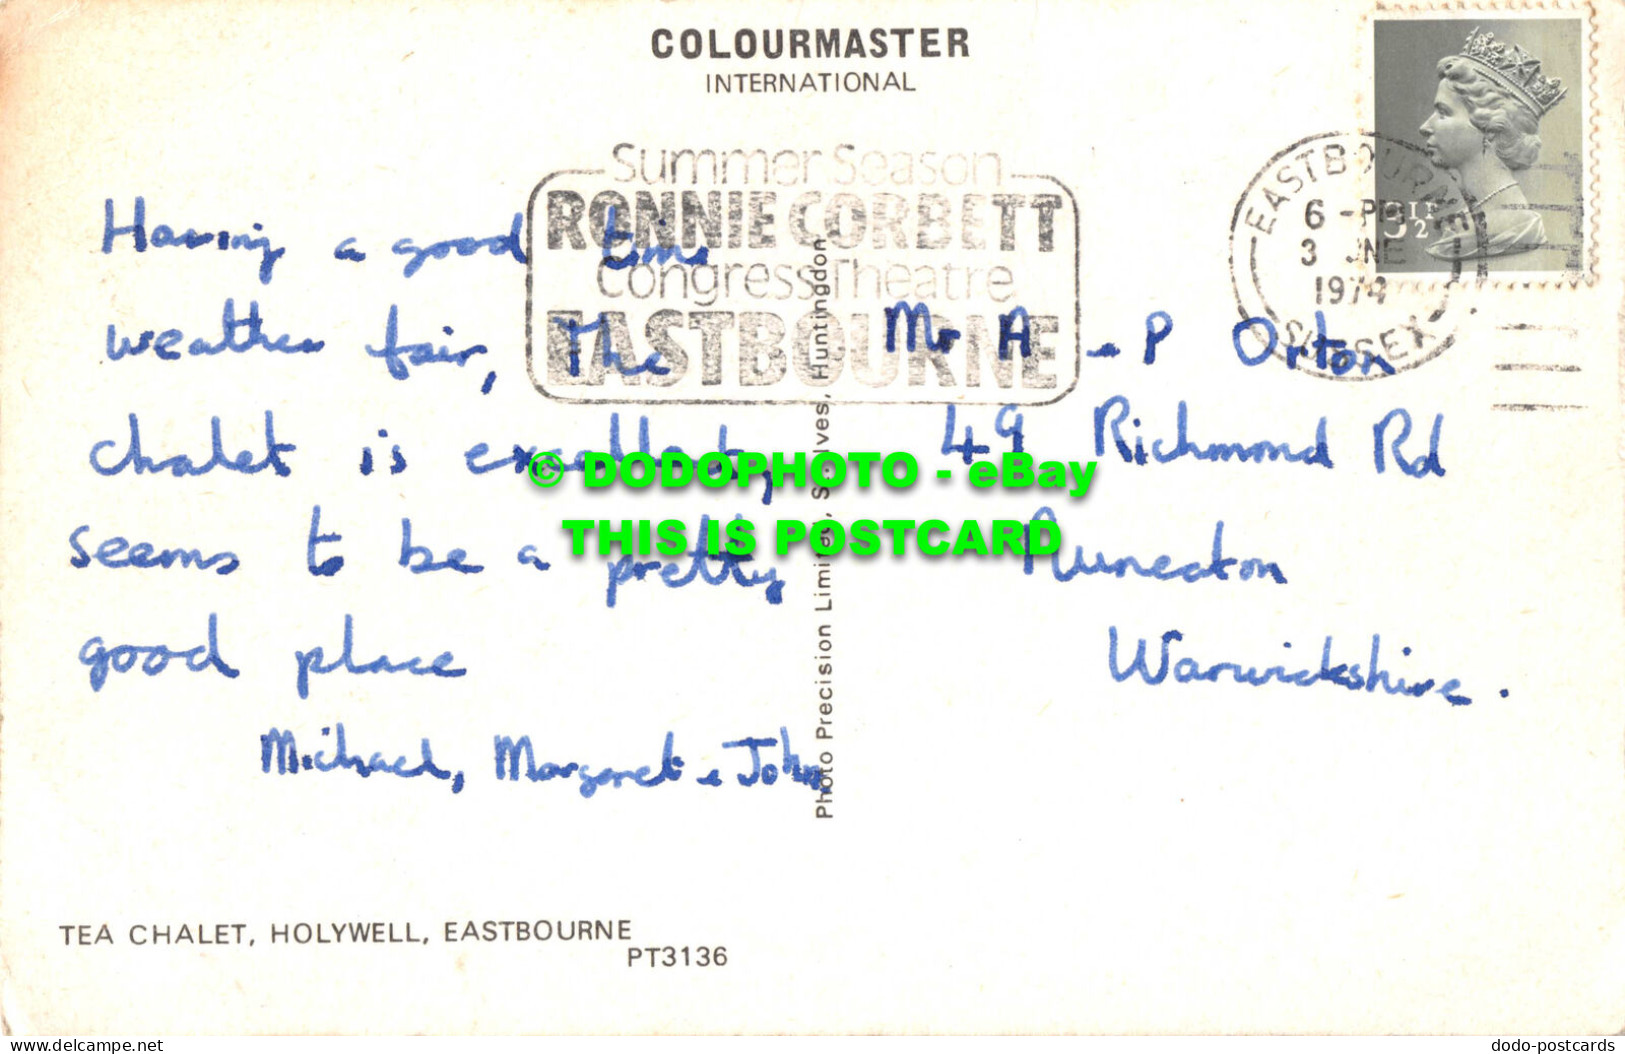 COLOURMASTER
INTERNATIONAL
Summer Season
RONNIE CORBETT
Congress Theatre
EASTBOURNE
EASTBOURNE
6 - PM
3 JNE
1974
SUSSEX
3½P
Having a good time
weather fair, The
chalet is excellent,
seems to be a pretty
good place
Michael, Margaret & John
Mr A - P Orton
49 Richmond Rd
Nuneaton
Warwickshire.
© DODOPHOTO - eBay
THIS IS POSTCARD
Photo Precision Limited, St. Ives, Huntingdon
TEA CHALET, HOLYWELL, EASTBOURNE
PT3136
delcampe.net
dodo-postcards